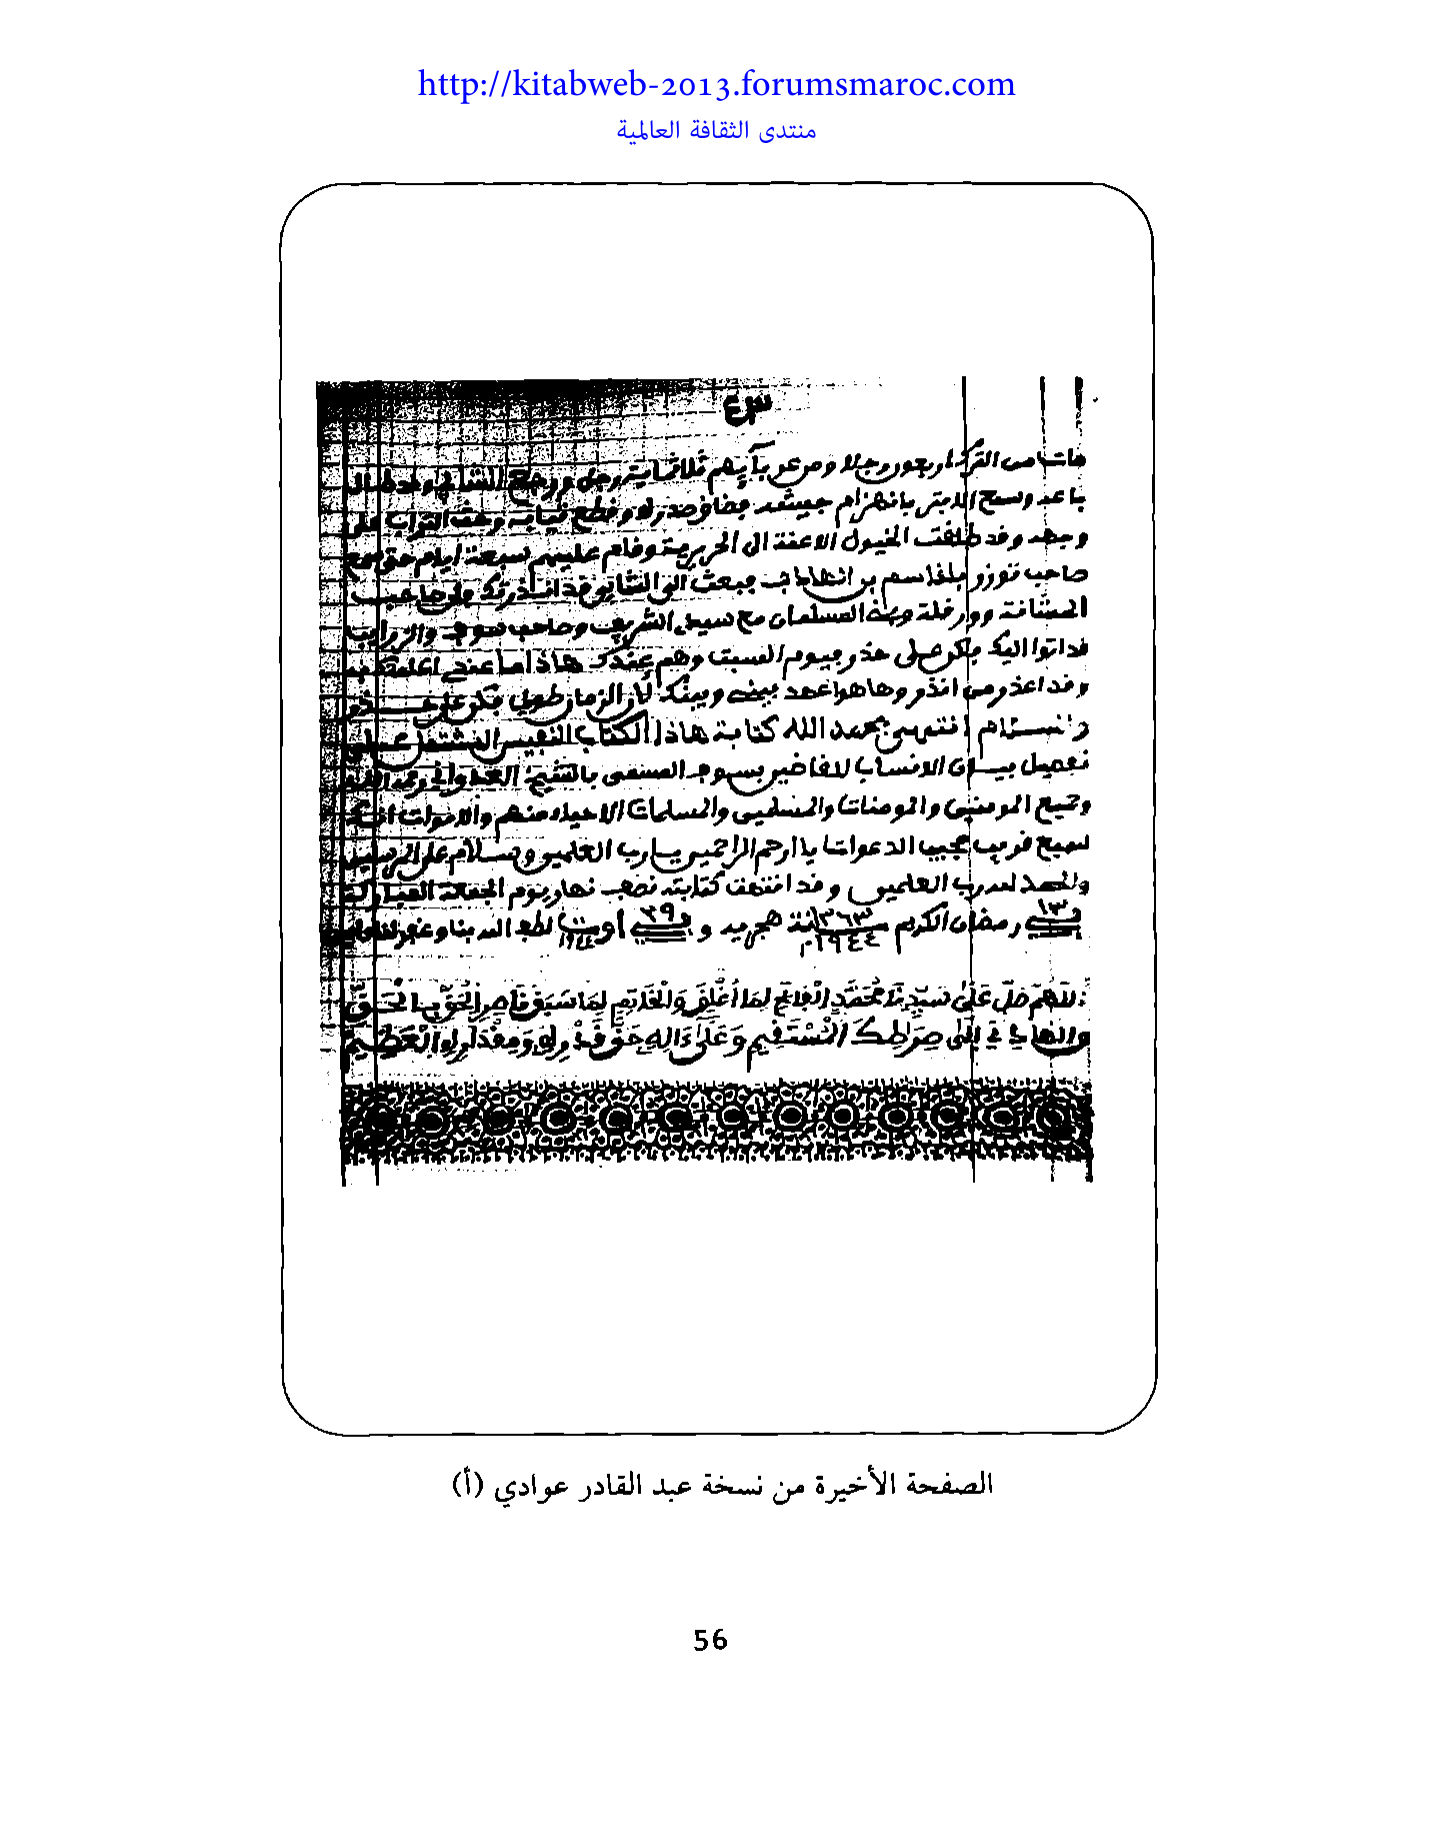 http://kitabweb-2013.forumsmaroc.com
منتدى الثقافة العالمية
مات من الترك اربعون رجلا ومن عربآيهم ثلاثماية رجل ورجع الشابي وقد طال
باعه وسمع الابتر بانهزام جيشه فضاق صدره وقطع ثيابه وحث التراب على
وجهه وقد طلقت الخيول الاعنة الى الحريرية وقام عليهم سبعة ايام حتى سمع
صاحب توزر بلقاسم بن فبعث الى الشابي قد انذرتك
ورقلة المسلمان مع سيدي الشريف وصاحب سوف والزرايب
قد اتوا اليك فكن على حذر فيوم السبت وهم عندك هاذا ما عندي اعلمتك به
وقد اعذر من انذر وها هوا عهد بيني وبينك لأن الزمان طويل فكن على حذر
انتهى بحمد الله كتابة هاذا الكتاب النفيس المشتمل على
تفصيل بيان الانساب بسوف المسمى بالشيخ العدواني رحمه الله
وجميع المومنين والمومنات والمسلمين والمسلمات الاحياء منهم والاموات انك
سميع قريب مجيب الدعوات يا ارحم الراحمين يا رب العلمين وسلام على المرسلين
والحمد لله رب العلمين وقد انتهت كتابته نصف نهار يوم الجمعة المباركة
في ١٣ رمضان الكريم سنة ١٣٦٣ هجريه و في أوت ١٩٤٤م لطف الله بنا
اللهم صل على سيدنا محمد الفاتح لما أغلق والخاتم لما سبق ناصر الحق بالحق
والهادي إلى صراطك المستقيم وعلى ءاله حق قدره ومقداره العظيم
الصفحة الأخيرة من نسخة عبد القادر عوادي (أ)
56